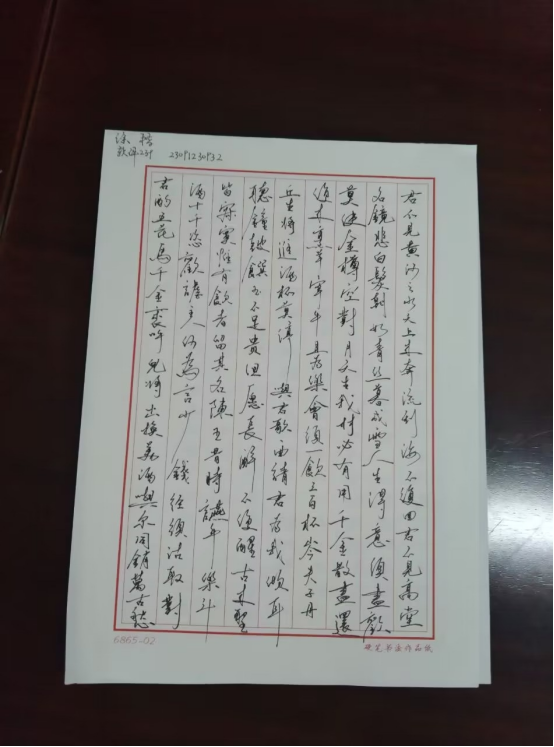 23091230932
君不见黄河之水天上来奔流到海不復回君不见高堂
名鏡悲白髮朝如青丝暮成雪人生得意须盡歡
莫使金樽空對月天生我材必有用千金散盡還
復来烹羊宰牛且為樂會须一飲三百杯岑夫子丹
丘生将進酒杯莫停與君歌曲請君為我傾耳
聽鐘鼓饌玉不足貴但愿長醉不復醒古来聖
皆寂寞惟有飲者留其名陳王昔時讌平樂斗
酒十千恣歡謔主人何為言少錢径须沽取對
君酌五花馬千金裘呼兒将出换美酒與尔同銷萬古愁
6865-02
硬笔书法作品纸